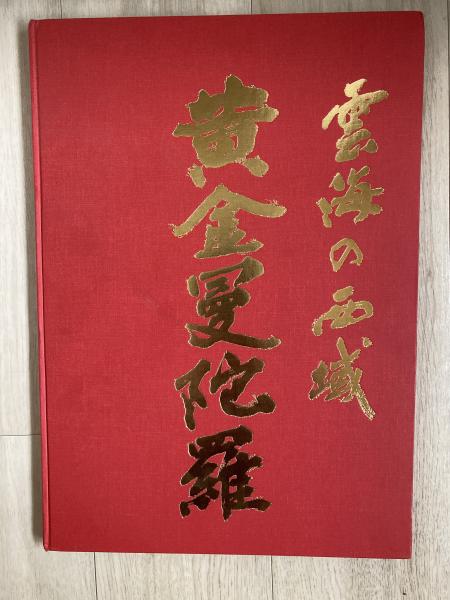 雲海の西域
黄金曼陀羅